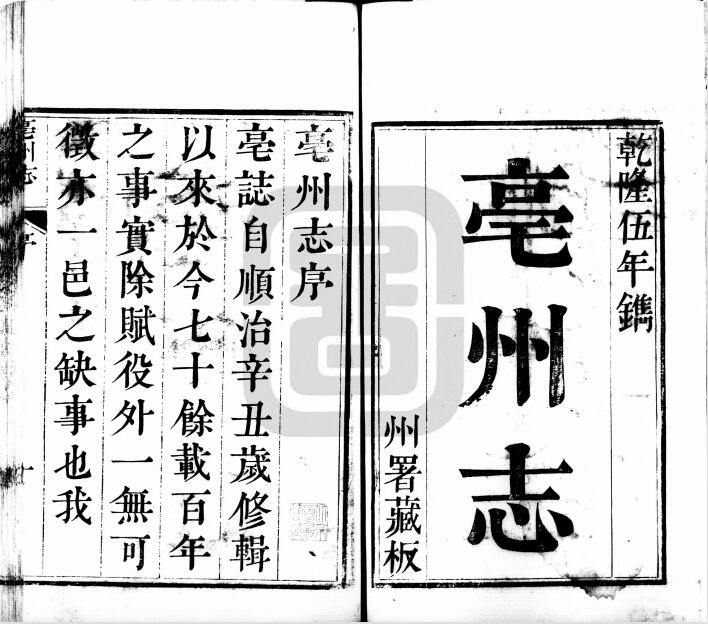 乾隆伍年鐫
亳州志
州署藏板
亳州志序
亳誌自順治辛丑歲修輯
以來於今七十餘載百年
之事實除賦役外一無可
徵亦一邑之缺事也我
亳州志
序